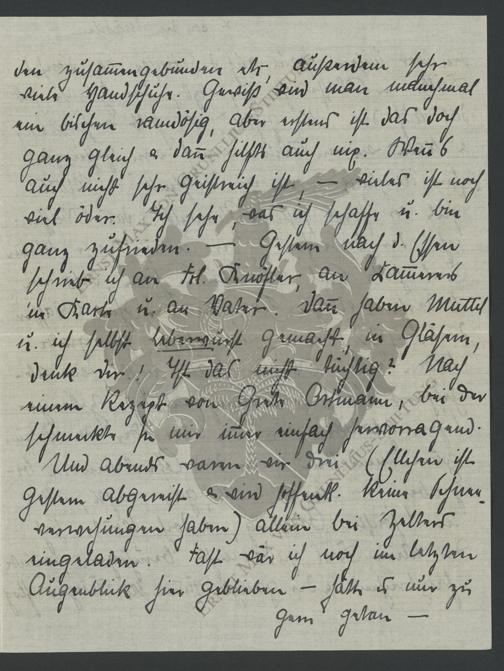 den zusam̄engebunden etc, außerdem sehr
viele Handschuhe. Gewiß wird man manchmal
ein bischen ramdösig, aber erstens ist das doch
ganz gleich & dan̄ hilfts auch nix. Wen̄s
auch nicht sehr geistreich ist, — vieles ist noch
viel öder. Ich sehe, was ich schaffe u. bin
ganz zufrieden. — Gestern nach d. Essen
schrieb ich an Frl. Knöfler, an Lam̄erers
in Karte u. an Vater. Dan̄ haben Muttel
u. ich selbst Leberwurst gemacht, in Gläsern,
denk dir! Ist das nicht tüchtig? Nach
einem Rezept von Grete Ortmann, bei der
schmeckte sie mir im̄er einfach hervorragend.
Und abends waren wir drei (Ellchen ist
gestern abgereist & wird hoffentl. keine Schnee-
verwehungen haben) allein bei Zelters
eingeladen. Fast wär ich noch im letzten
Augenblick hier geblieben — hätte es nur zu
gern getan —